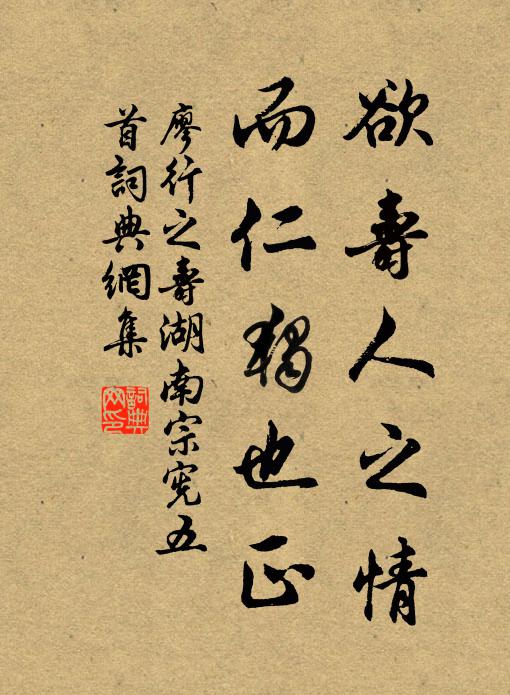 欲壽人之情
而仁獨也正
廖行之壽湖南宗憲五
首詞典網集
詞典
網印